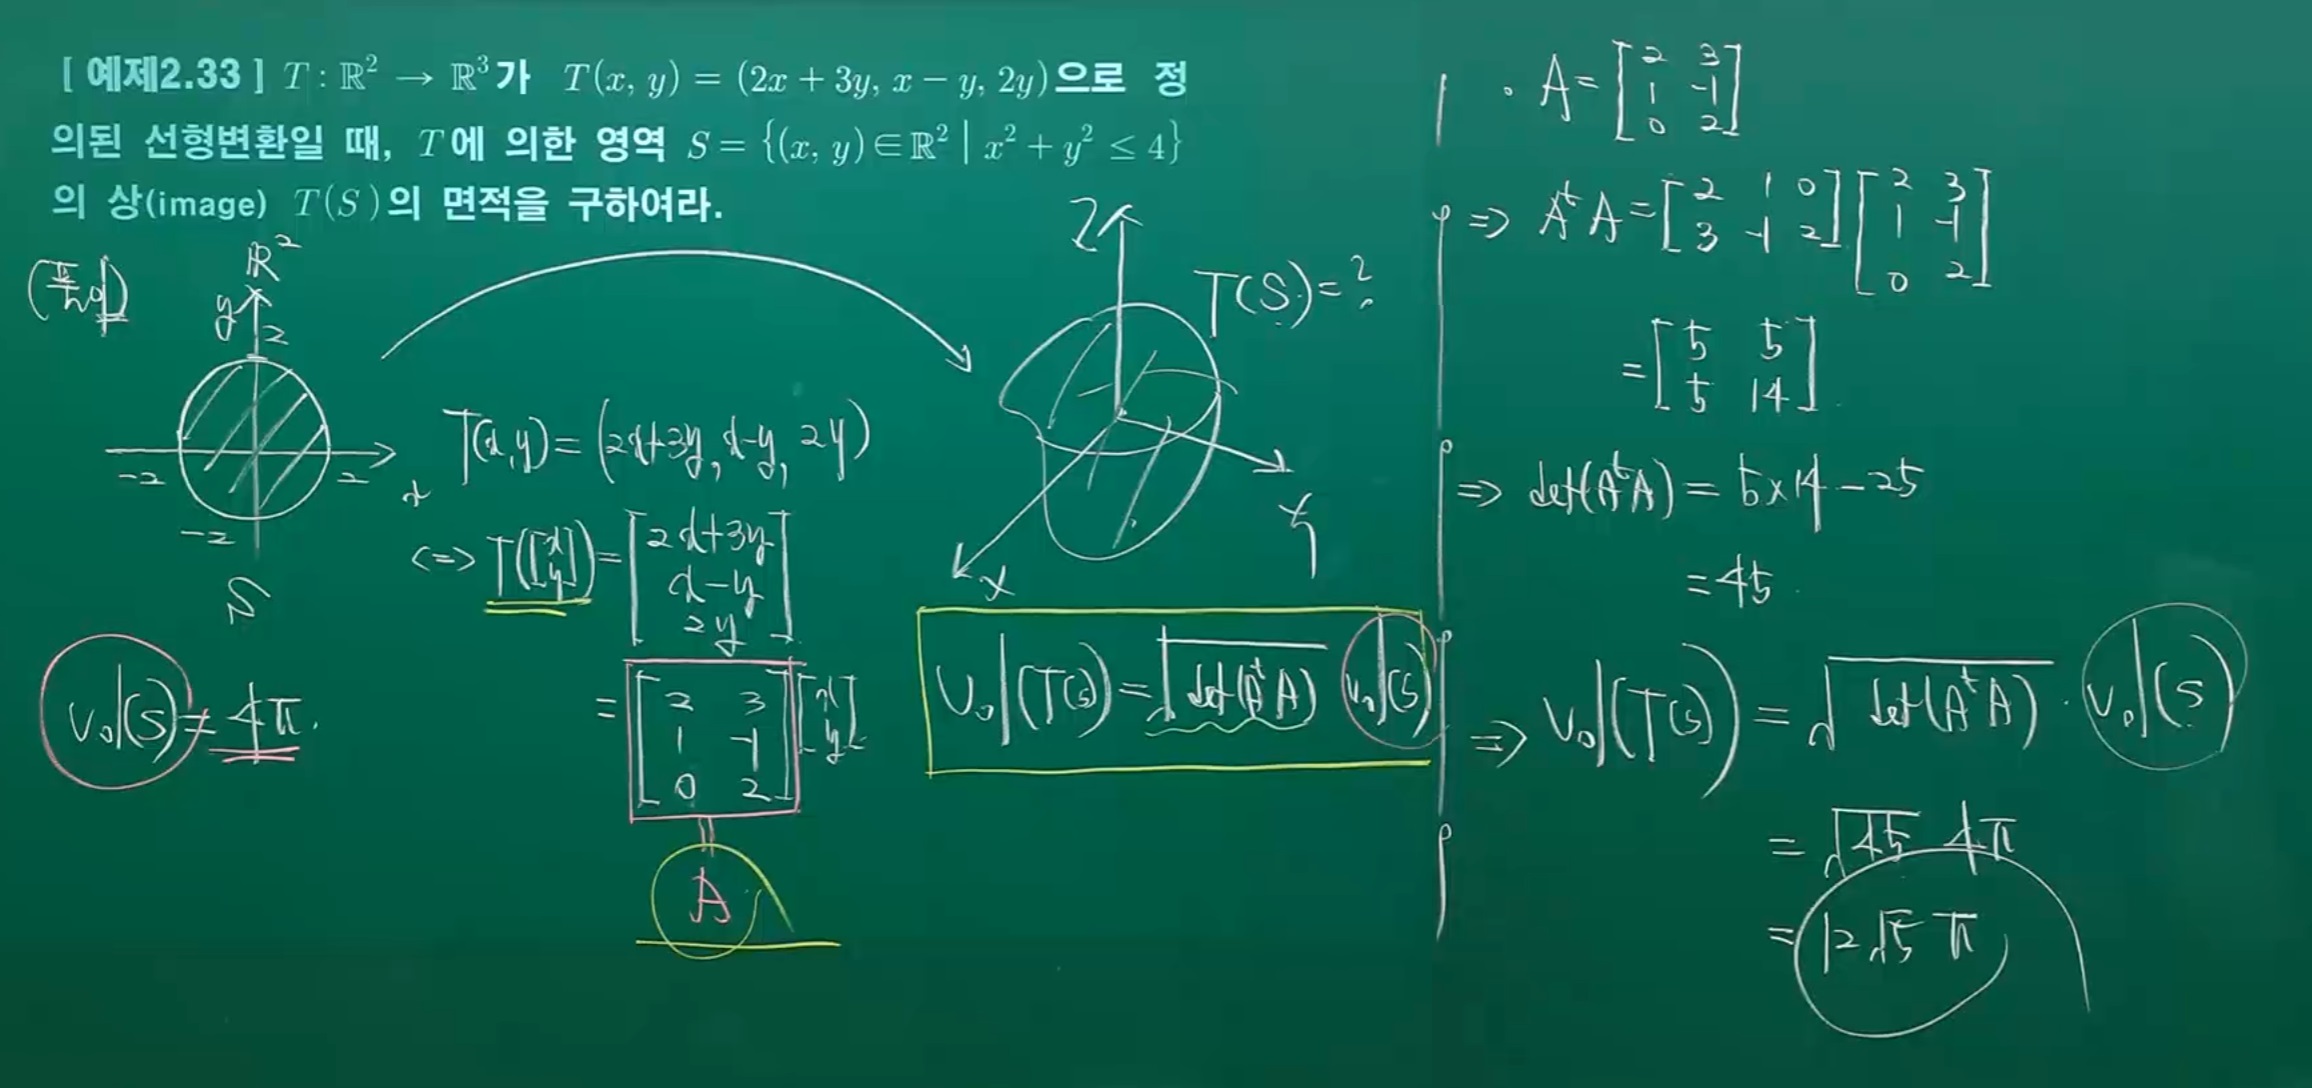 [ 예제2.33 ] T : ℝ² → ℝ³가 T(x, y) = (2x + 3y, x − y, 2y)으로 정
의된 선형변환일 때, T에 의한 영역 S = {(x, y)∈ℝ² | x² + y² ≤ 4}
의 상(image) T(S)의 면적을 구하여라.
(풀이)
ℝ²
y
2
-2 2 x
-2
S
vol(S) = 4π.
T(x,y) = (2x+3y, x-y, 2y)
<=> T([x y]) = [2x+3y
x-y
2y]
= [2 3
1 -1
0 2] [x
y]
A
Z
T(S) = ?
Y
X
Vol(T(S)) = √det(AᵗA) vol(S)
· A = [2 3
1 -1
0 2]
=> AᵗA = [2 1 0
3 -1 2] [2 3
1 -1
0 2]
= [5 5
5 14]
=> det(AᵗA) = 5×14 - 25
= 45
=> Vol(T(S)) = √det(AᵗA) · Vol(S)
= √45 4π
= 12√5 π